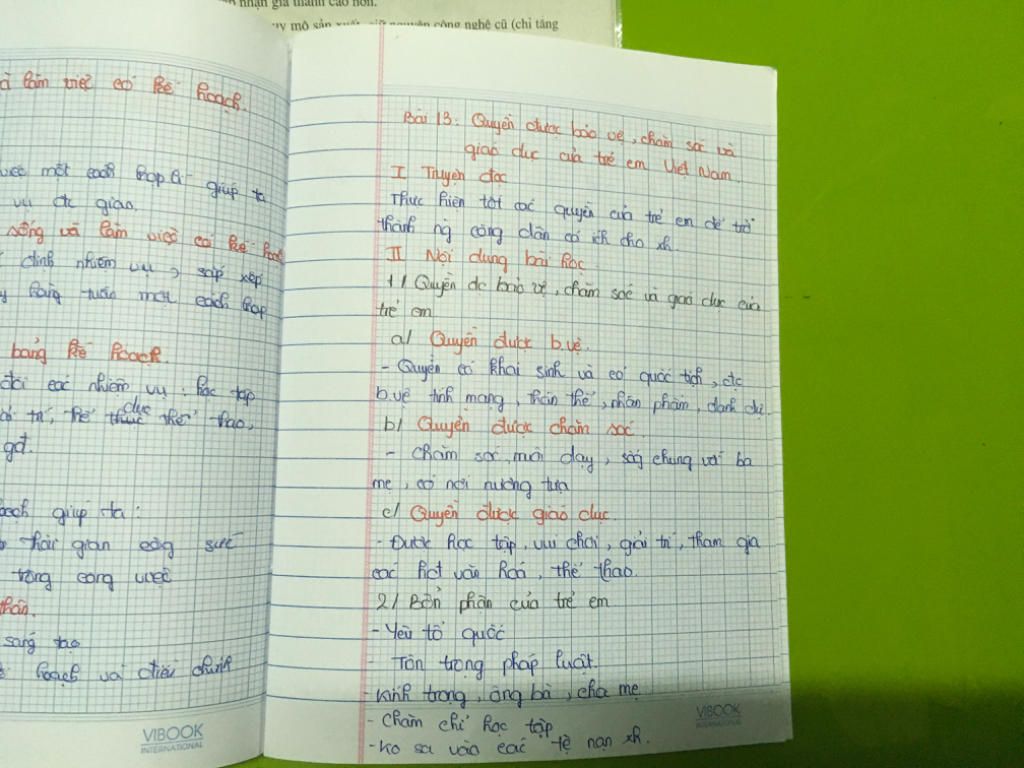 nhận giá thành cao hơn.
uy mô sản xuất, giữ nguyên công nghệ cũ (chỉ tăng
làm việc có kế hoạch.
việc một cách hợp lí giúp ta
vụ đc giao.
sống và làm việc có kế hoạch
định nhiệm vụ, sắp xếp
hàng tuần một cách hợp
bảng kế hoạch.
đối các nhiệm vụ: học tập
trí, thể thao,
dục
gđ.
hoạch giúp ta:
thời gian công sức
trong công việc
sáng tạo
hoạch và điều chỉnh
VIBOOK
INTERNATIONAL
Bài 13: Quyền được bảo vệ, chăm sóc và
giáo dục của trẻ em Việt Nam.
I Truyện đọc
Thực hiện tốt các quyền của trẻ em để trở
thành ng công dân có ích cho xh.
II Nội dung bài học
1/ Quyền đc bảo vệ, chăm sóc và giáo dục của
trẻ em
a/ Quyền được b.vệ.
- Quyền có khai sinh và có quốc tịch, đc
b.vệ tính mạng, thân thể, nhân phẩm, danh dự.
b/ Quyền được chăm sóc.
- Chăm sóc, nuôi dạy, sống chung với ba
mẹ, có nơi nương tựa
c/ Quyền được giáo dục.
- Được học tập, vui chơi, giải trí, tham gia
các hđ văn hoá, thể thao.
2/ Bổn phận của trẻ em
- Yêu tổ quốc
- Tôn trọng pháp luật.
- Kính trọng, ông bà, cha mẹ
- Chăm chỉ học tập
- ko sa vào các tệ nạn xh.
VIBOOK
INTERNATIONAL